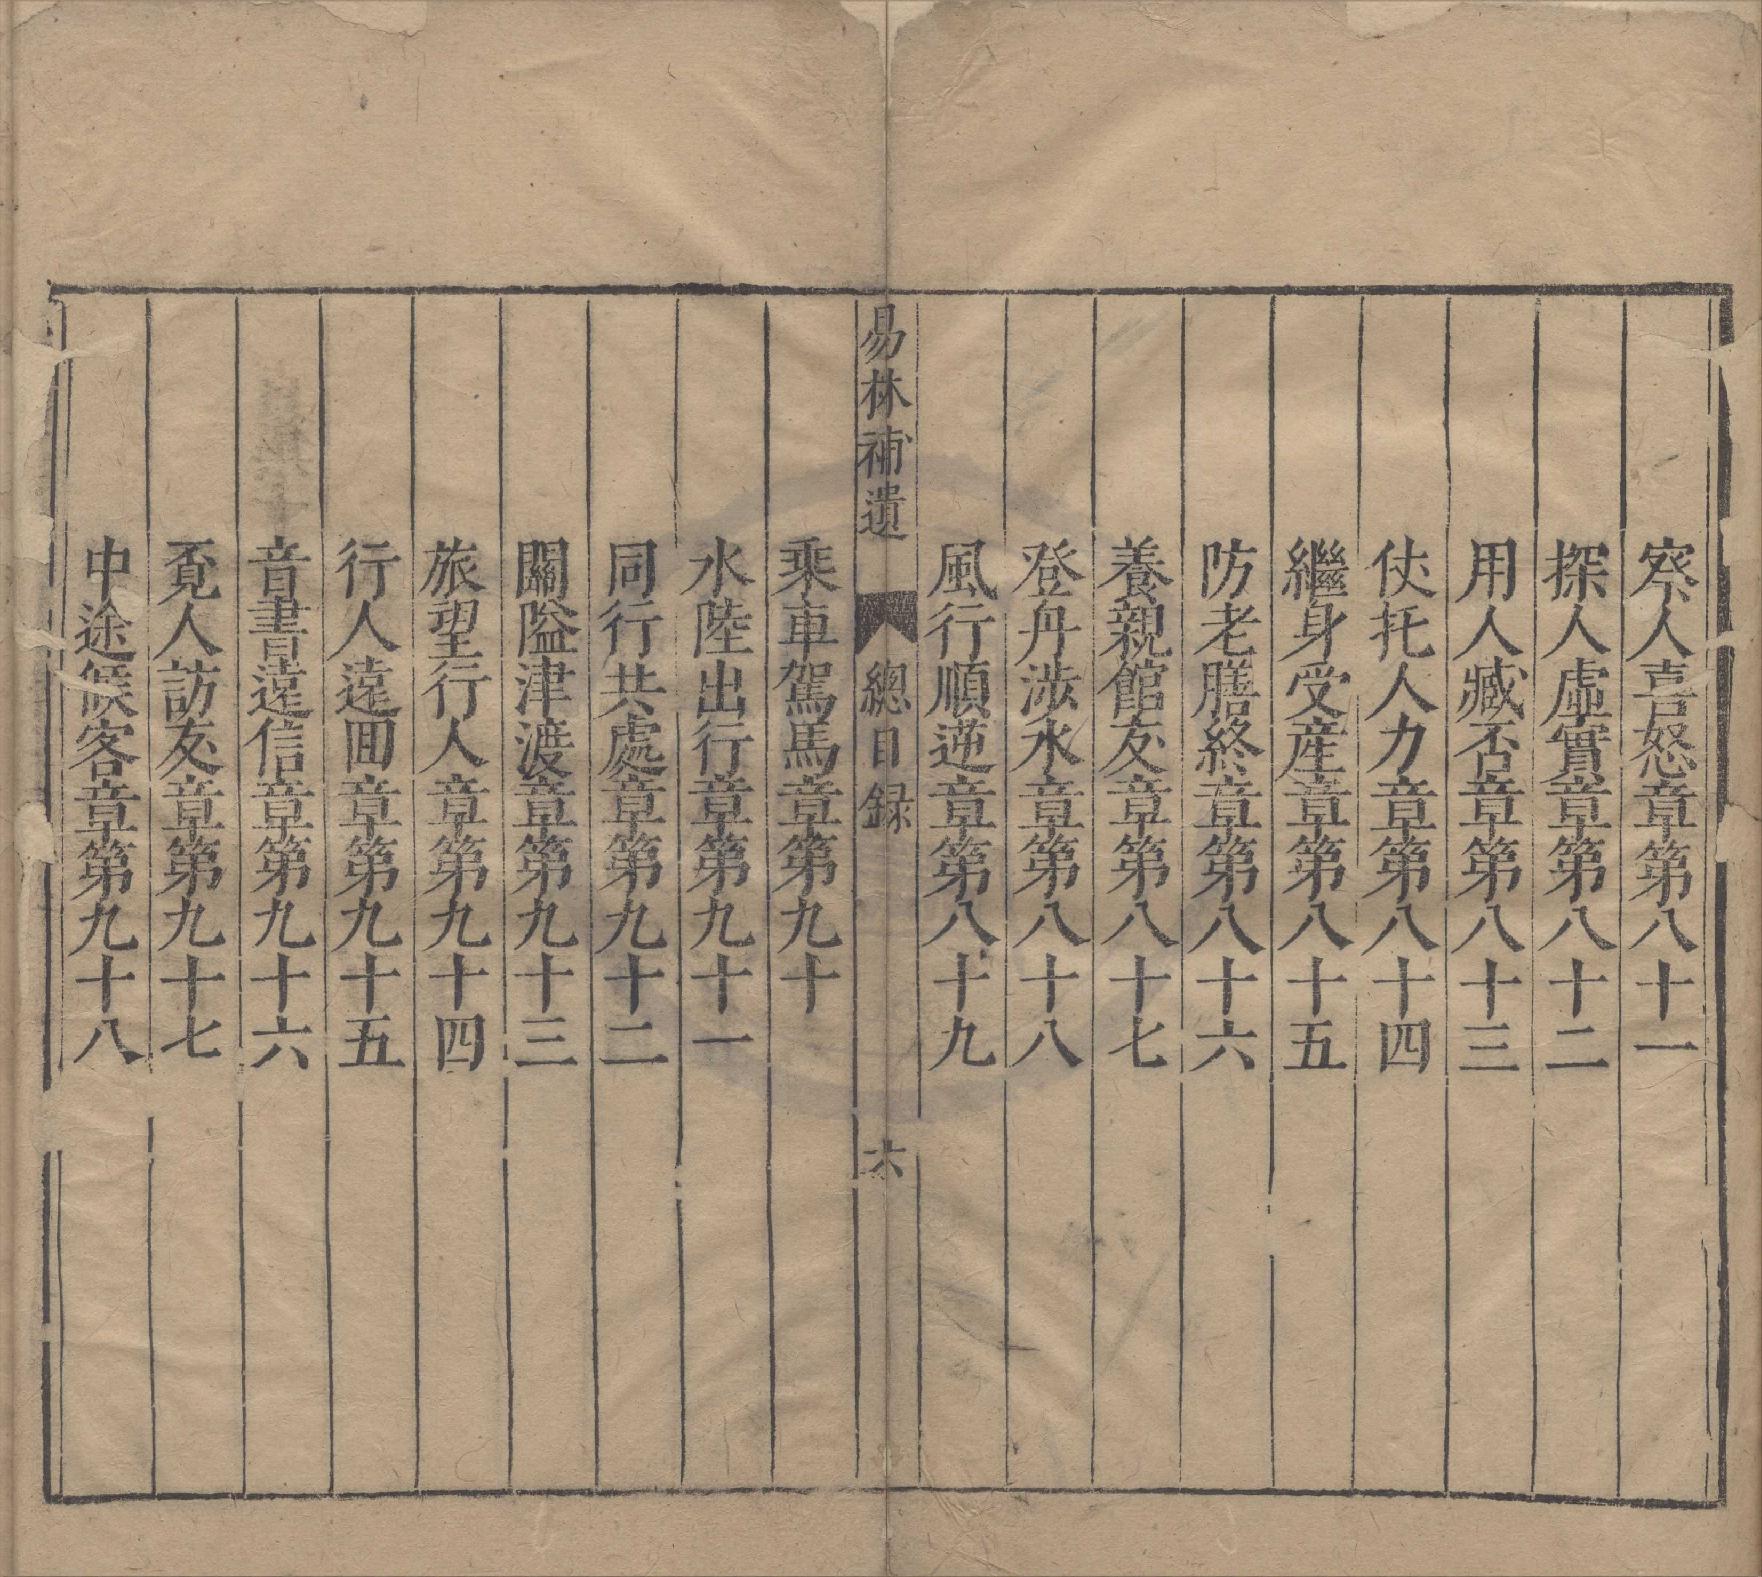 察人喜怒章第八十一
探人虛實章第八十二
用人臧否章第八十三
仗托人力章第八十四
繼身受產章第八十五
防老膳終章第八十六
養親館友章第八十七
登舟涉水章第八十八
風行順逆章第八十九
易林補遺
總目録
六
乗車駕馬章第九十
水陸出行章第九十一
同行共處章第九十二
關隘津渡章第九十三
旅望行人章第九十四
行人遠回章第九十五
音書遠信章第九十六
覔人訪友章第九十七
中途候客章第九十八